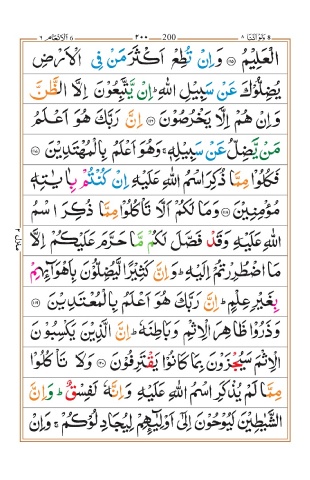 ٦ الانعام ٦ ٢٠٠ 200 ولواننا ٨
الْعَلِيْمُ ﴿١١٥﴾ وَاِنْ تُطِعْ اَكْثَرَ مَنْ فِى الْاَرْضِ
يُضِلُّوْكَ عَنْ سَبِيْلِ اللّٰهِ ؕ اِنْ يَّتَّبِعُوْنَ اِلَّا الظَّنَّ
وَاِنْ هُمْ اِلَّا يَخْرُصُوْنَ ﴿١١٦﴾ اِنَّ رَبَّكَ هُوَ اَعْلَمُ
مَنْ يَّضِلُّ عَنْ سَبِيْلِهٖ ۚ وَهُوَ اَعْلَمُ بِالْمُهْتَدِيْنَ ﴿١١٧﴾
فَكُلُوْا مِمَّا ذُكِرَ اسْمُ اللّٰهِ عَلَيْهِ اِنْ كُنْتُمْ بِاٰيٰتِهٖ
مُؤْمِنِيْنَ ﴿١١٨﴾ وَمَا لَكُمْ اَلَّا تَاْكُلُوْا مِمَّا ذُكِرَ اسْمُ
اللّٰهِ عَلَيْهِ وَقَدْ فَصَّلَ لَكُمْ مَّا حَرَّمَ عَلَيْكُمْ اِلَّا
مَا اضْطُرِرْتُمْ اِلَيْهِ ؕ وَاِنَّ كَثِيْرًا لَّيُضِلُّوْنَ بِاَهْوَآئِهِمْ
بِغَيْرِ عِلْمٍ ؕ اِنَّ رَبَّكَ هُوَ اَعْلَمُ بِالْمُعْتَدِيْنَ ﴿١١٩﴾
وَذَرُوْا ظَاهِرَ الْاِثْمِ وَبَاطِنَهٗ ؕ اِنَّ الَّذِيْنَ يَكْسِبُوْنَ
الْاِثْمَ سَيُجْزَوْنَ بِمَا كَانُوْا يَقْتَرِفُوْنَ ﴿١٢٠﴾ وَلَا تَاْكُلُوْا
مِمَّا لَمْ يُذْكَرِ اسْمُ اللّٰهِ عَلَيْهِ وَاِنَّهٗ لَفِسْقٌ ؕ وَاِنَّ
الشَّيٰطِيْنَ لَيُوْحُوْنَ اِلٰٓى اَوْلِيٰٓئِهِمْ لِيُجَادِلُوْكُمْ ۚ وَاِنْ